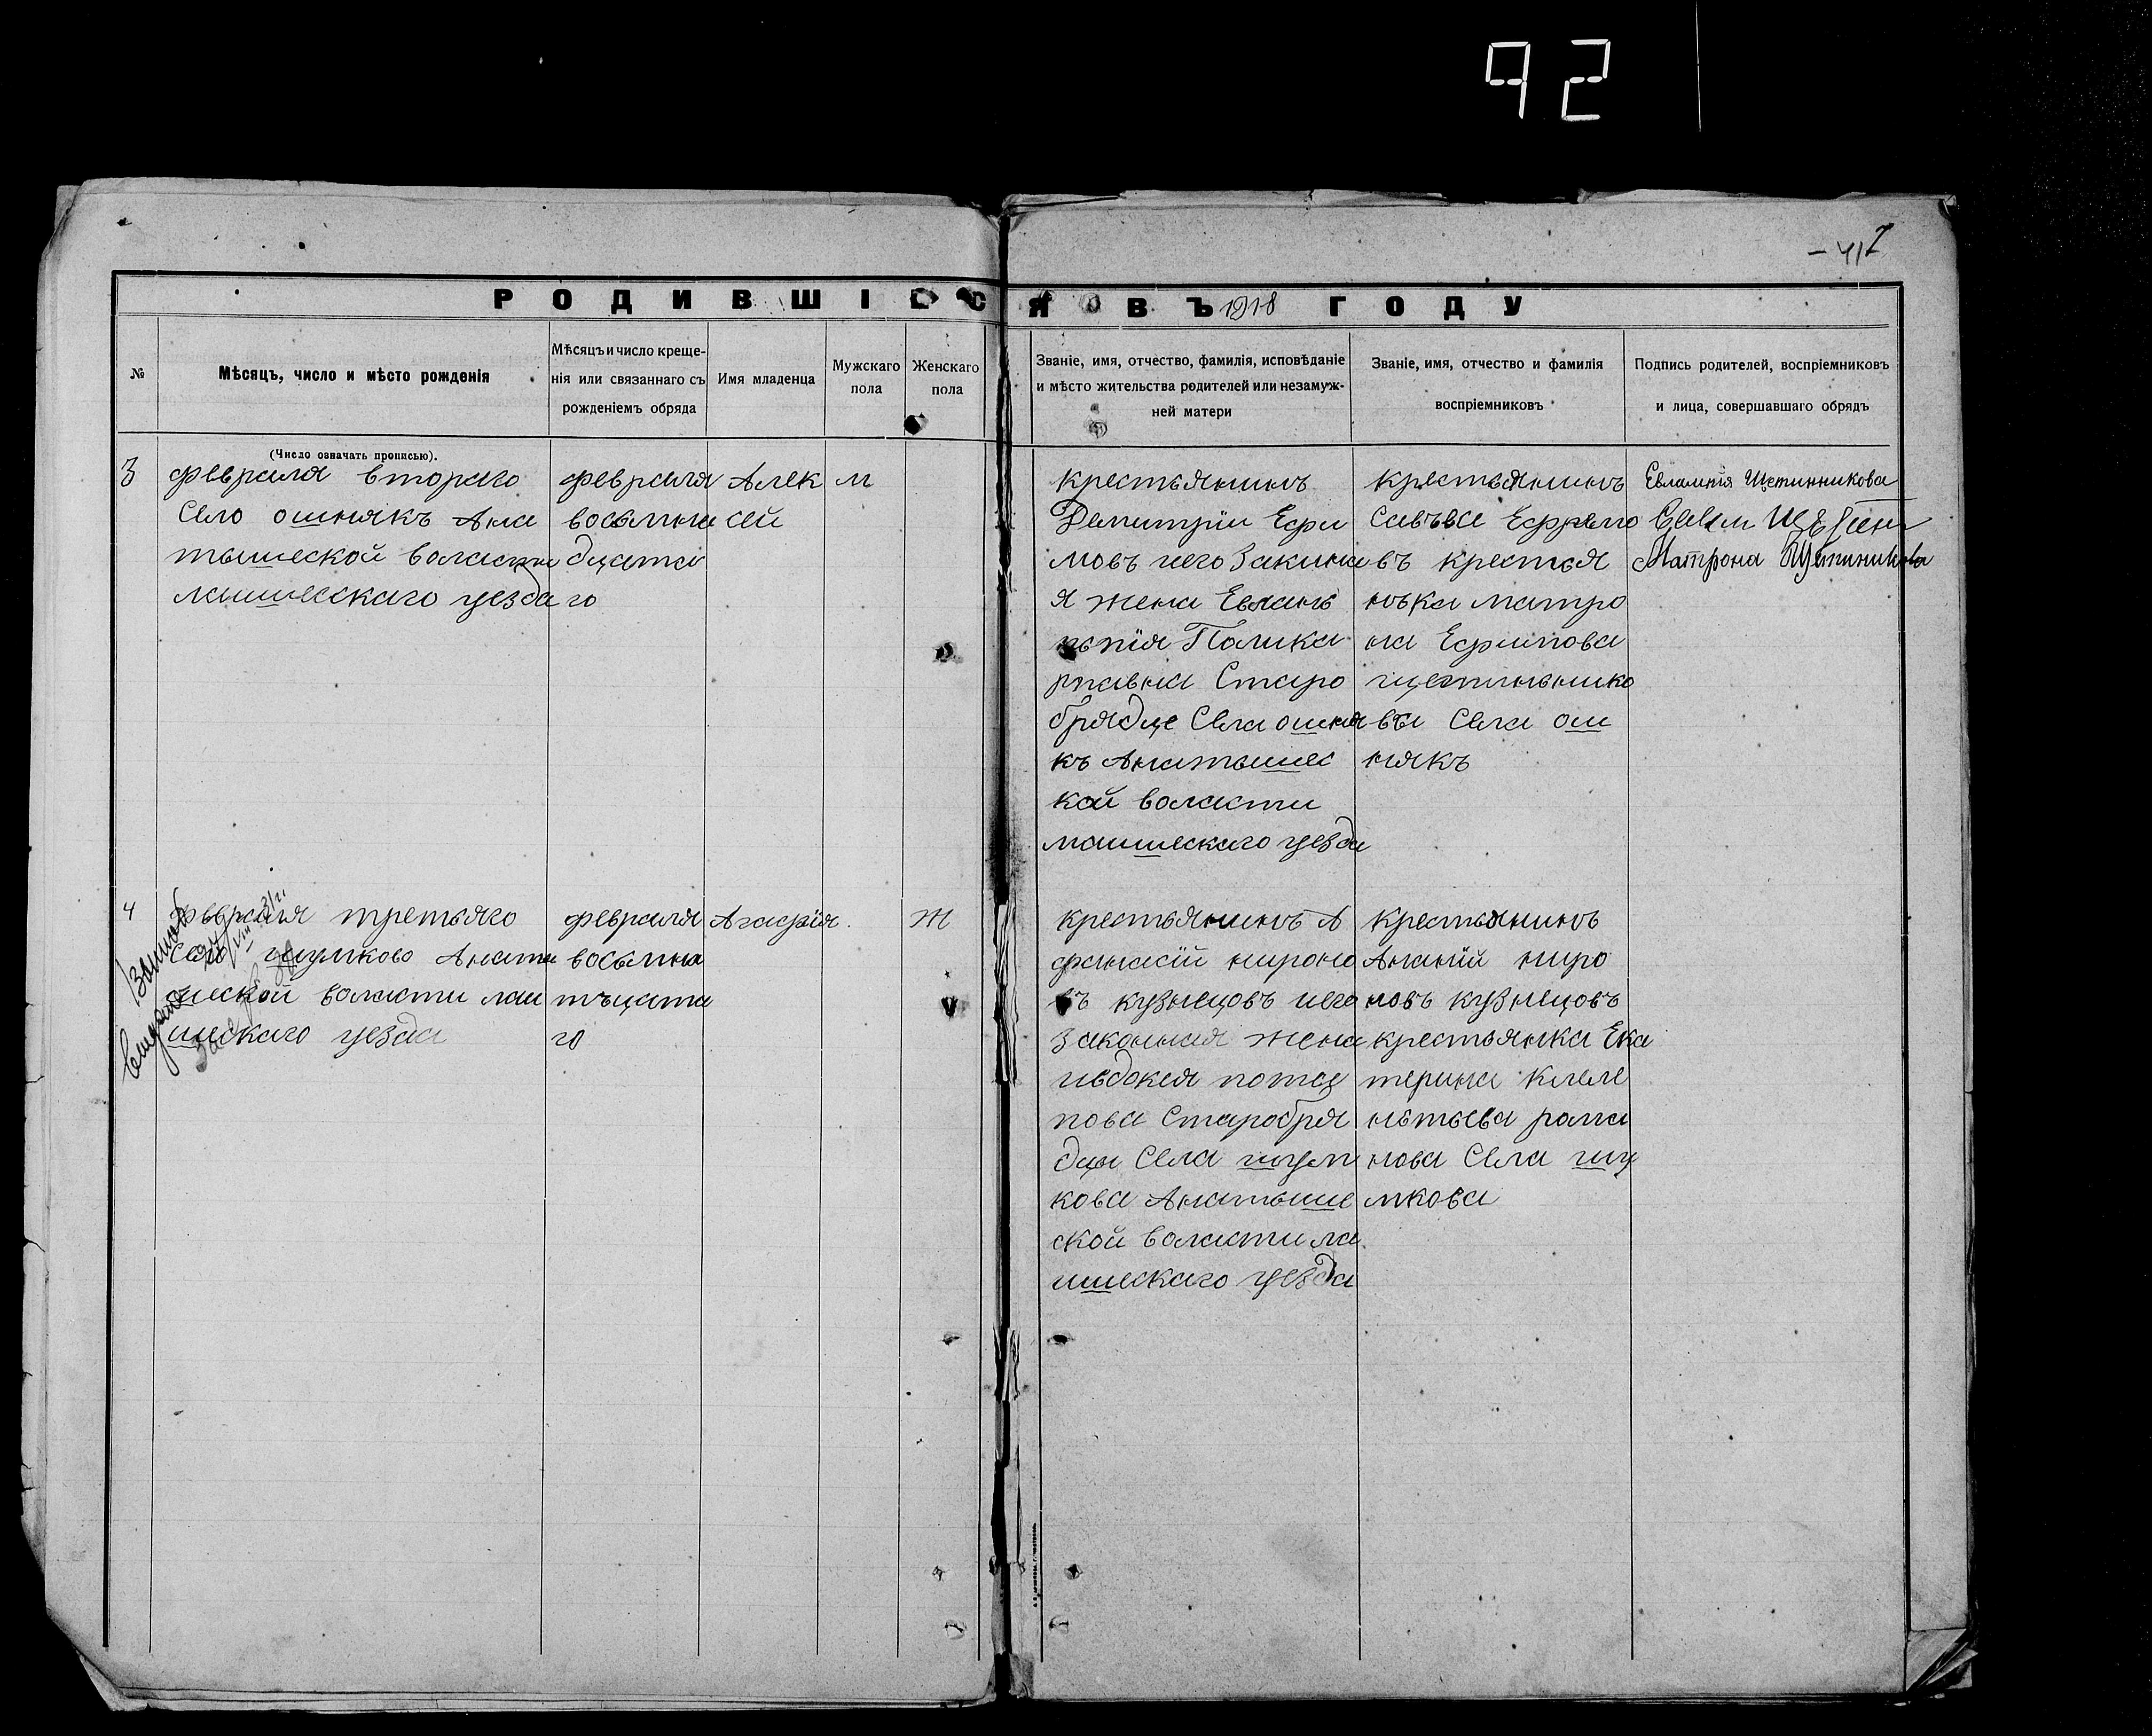 92
7
РОДИВШІЕСЯ ВЪ 1918 ГОДУ
№
Мѣсяцъ, число и мѣсто рожденія
Мѣсяцъ и число креще-
нія или связаннаго съ
рожденіемъ обряда
Имя младенца
Мужскаго
пола
Женскаго
пола
Званіе, имя, отчество, фамилія, исповѣданіе
и мѣсто жительства родителей или незамуж-
ней матери
Званіе, имя, отчество и фамилія
воспріемниковъ
Подпись родителей, воспріемниковъ
и лица, совершавшаго обрядъ
(Число означать прописью).
3
февраля втораго
Село ошнякъ Ана
тышеской воласти
лаишескаго уезда
февраля
восьмна
дцати
го
Алек
сей
м
крестьянинъ
Демитрiи Ефи
мовъ иего Закина
я жена Евлань
пия Полика
рпавна Старо
брядце Села ошня
къ Анатышес
кой воласти
лаишескаго уезда
крестьянинъ
Савъва Ефремо
въ крестья
нъка матро
на Ефимова
щетинънико
ва Села ош
някъ
Евлампiя Щетинникова
Матрона Щетинникова
4
февраля третьяго
Село шумково Анаты
шеской воласти лаи
шескаго уезда
февраля
восьмна
тъцата
го
Агафiя.
Ж
крестьянинъ А
фанасiй мироно
въ кузнецовъ иего
законная жена
ивдокея потап
пова Старобря
дцы Села шум
кова Анатыше
ской воласти ла
ишескаго уезда
крестьянинъ
Ананiй миро
новъ кузнецовъ
крестьянка Ека
терина клеме
нътьева рама
нова Села шу
мкова